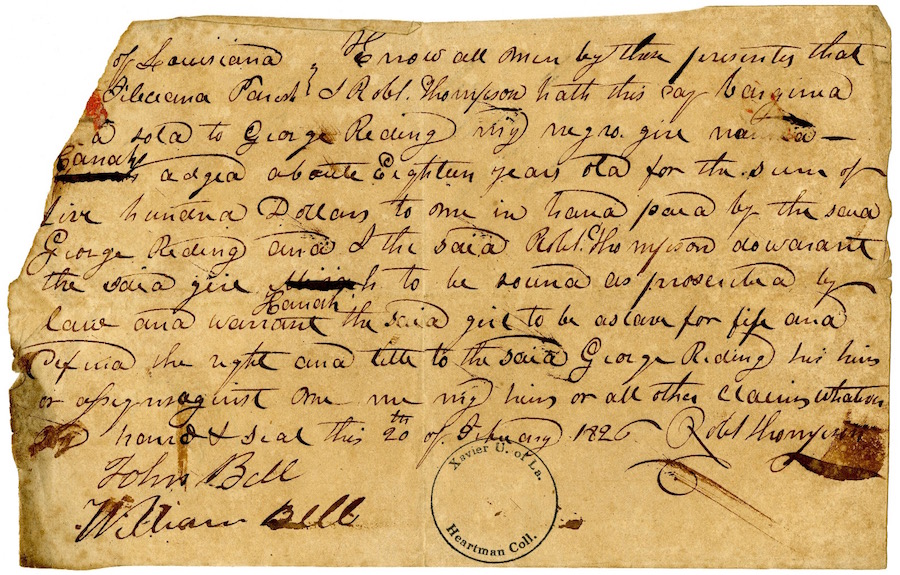 of Louisiana Know all men by these presents that
Feliciana Parish I Robt. Thompson hath this day bargined
a sold to George Reding my negro girl named
Hanah aged aboute Eighteen years old for the sum of
five hundred Dollars to me in hand paid by the said
George Reding and I the said Robt. Thompson do warant
the said girl to be sound as proscribed by
Hanah
law and warrant the said girl to be aslave for life and
Defend the right and title to the said George Reding his hirs
or assigns against me me my hirs or all other claims whatever
hand & seal this 20th of February 1826 Robt Thompson
John Bell
William Bell
Xavier U. of La.
Heartman Coll.